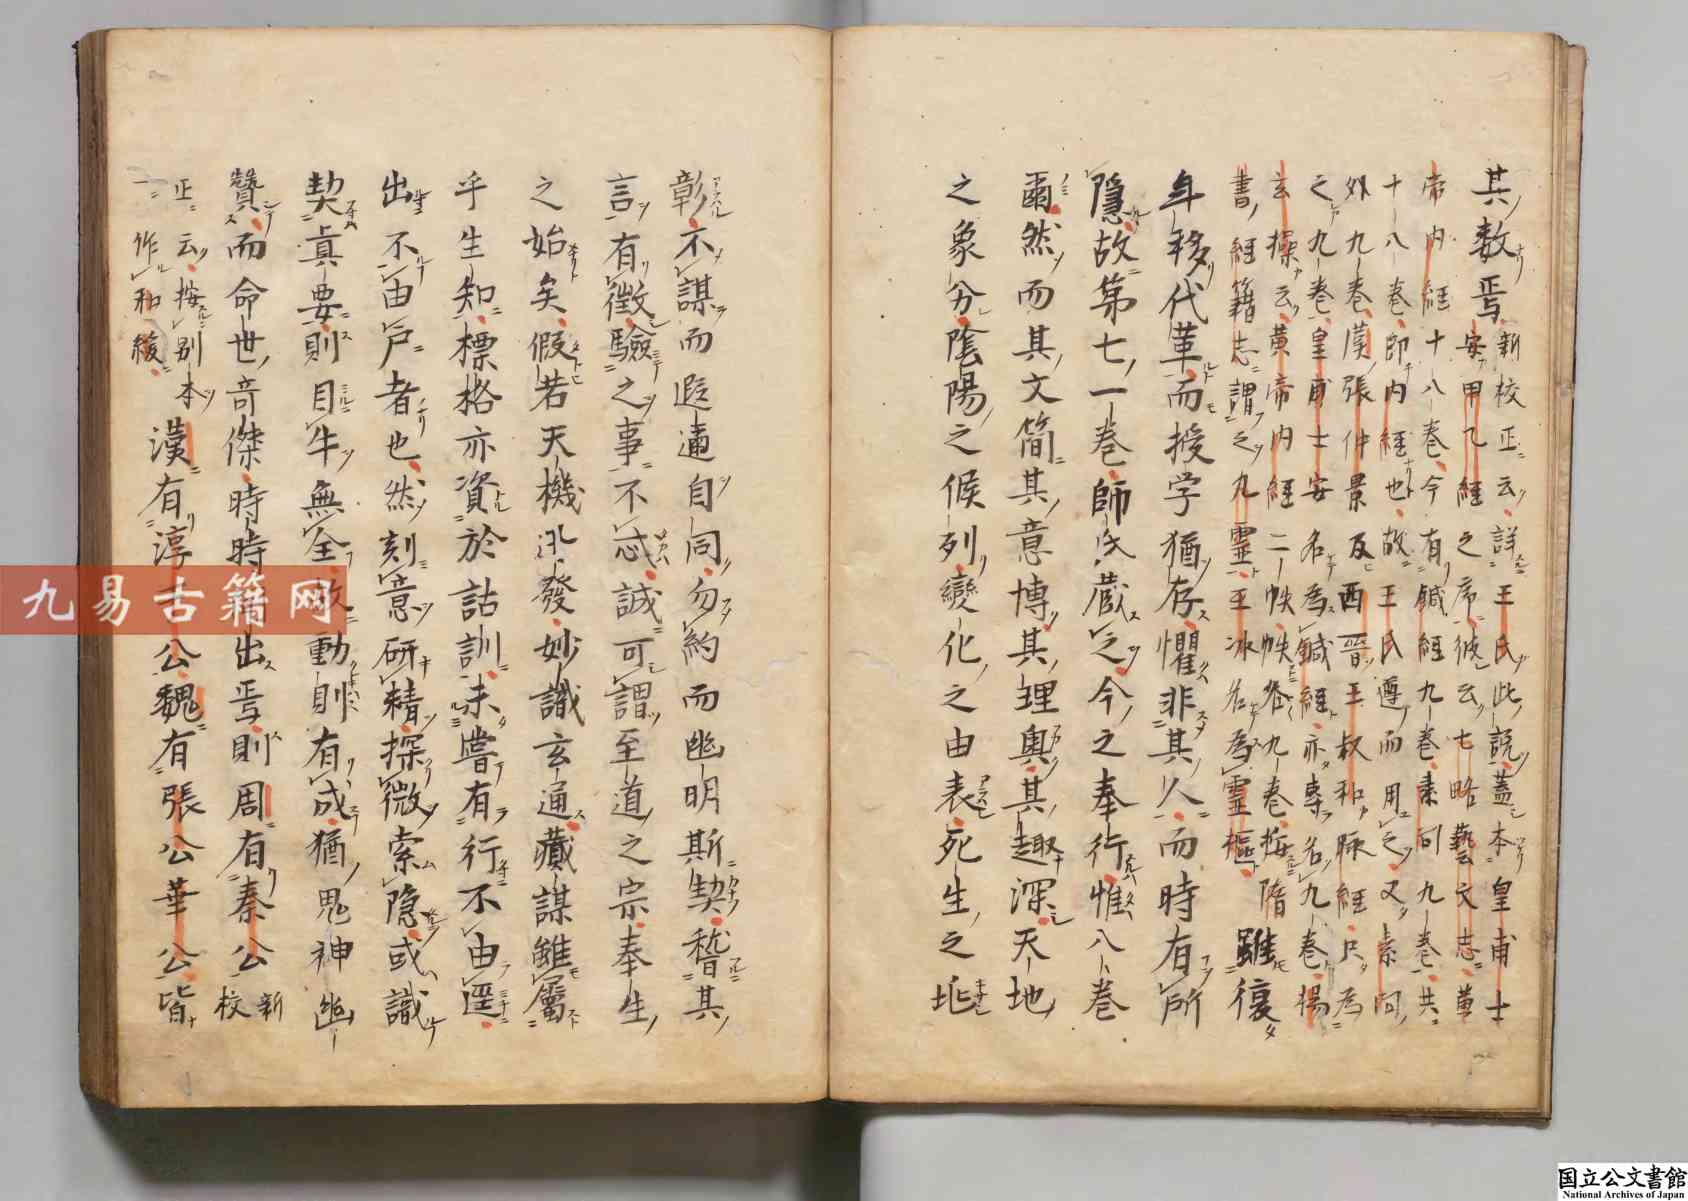 其数焉
新校正云詳王氏此説蓋本皇甫士
安甲乙経之序彼云七略藝文志黄
帝内経十八巻今有鍼経九巻素问九巻共
十八巻即内経也故王氏遵而用之又素问
外九巻漢張仲景及西晋王叔和脉経只為
之九巻皇甫士安名為鍼経亦専名九巻楊
玄操云黄帝内経二帙帙各九巻按隋
書経籍志謂之九靈王冰名為靈樞
雖復
年移代革而授学猶存懼非其人而時有所
隠故第七一巻師氏蔵之今之奉行惟八巻
爾然而其文簡其意博其理奥其趣深天地
之象分陰陽之候列變化之由表死生之兆
彰不謀而遐邇自同勿約而幽明斯契稽其
言有徴驗之事不忒誠可謂至道之宗奉生
之始矣假若天機迅發妙識玄通藏謀雖屬
乎生知標格亦資於詁訓未嘗有行不由逕
出不由戸者也然刻意研精探微索隠或識
契眞要則目牛無全故動則有成猶鬼神幽
贊而命世奇傑時時間出焉則周有秦公
新
校
正云按别本
一作和緩
漢有淳于公魏有張公華公皆
九易古籍网
国立公文書館
National Archives of Japan